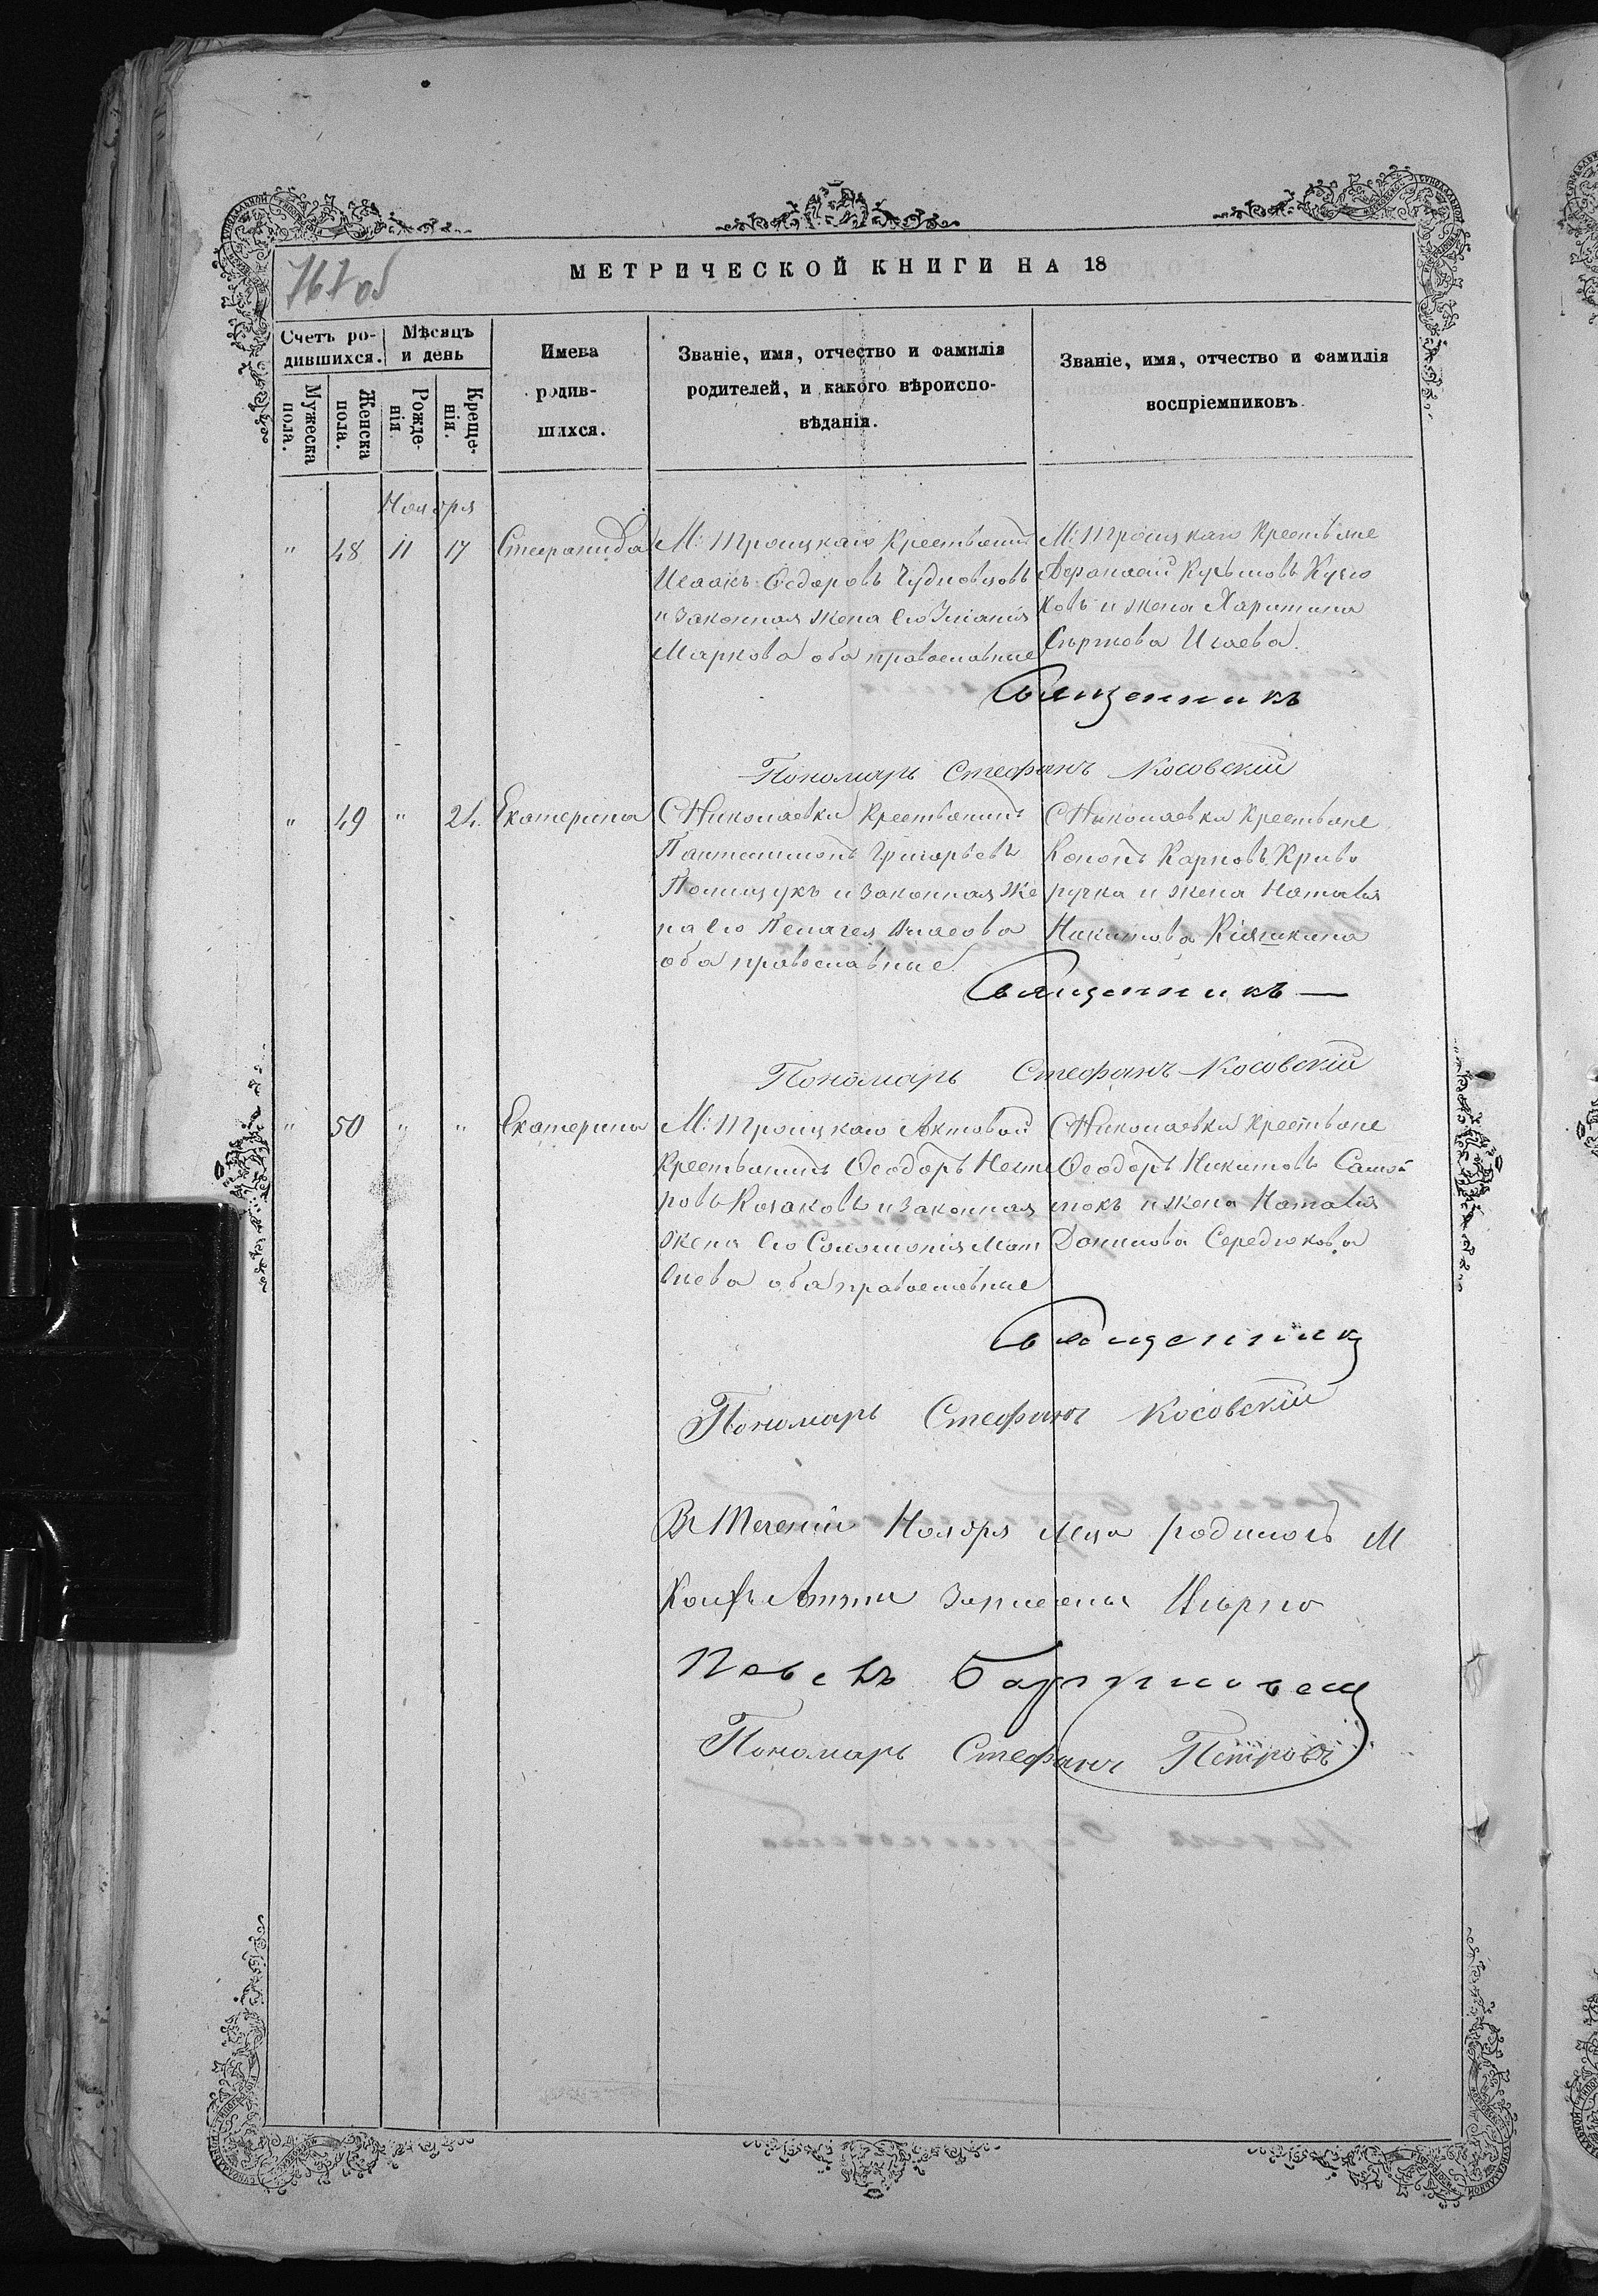 767 об
МЕТРИЧЕСКОЙ КНИГИ НА 18
Счетъ ро-
дившихся.
Мѣсяцъ
и день
Мужеска
пола.
Женска
пола.
Рожде-
нія
Креще-
нія.
Имена
родив-
шихся.
Званіе, имя, отчество и фамилія
родителей, и какого вѣроиспо-
вѣданія.
Званіе, имя, отчество и фамилія
воспріемниковъ
Ноября
" 48 11 17 Стефанида
М: Троицкаго Крестьянинъ
Исаакъ Ѳедоровъ Чудновцовъ
и законная жена его
Маркова оба православные
М: Троицкаго Крестьяне
Афанасій Кузьмовъ Кучю
ковъ и жена Харитина
Исаева.
Священникъ
Пономарь Стефанъ Косовскій
" 49 " 24 Екатерина
С Николаевки Крестьянинъ
Пантелимонъ Григорьевъ
Полищукъ и законная же
на его Пелагея Власова
оба православные.
С Николаевки Крестьяне
Кононъ Карповъ Криво
ручка и жена Наталія
Никитова
Священникъ —
Пономарь Стефанъ Косовскій
" 50 " " Екатерина
М: Троицкаго Актовой
Крестьянинъ Ѳеодоръ Несте
ровъ Козаковъ и законная
жена его Соломонія Мат
ѳиева оба православные
С Николаевки Крестьяне
Ѳеодоръ Никитовъ Самой
люкъ и жена Наталія
Данилова Середюкова
Священникъ
Пономарь Стефанъ Косовскій
Въ теченіи Ноября мсца родилось М
записаны вѣрно
Павелъ
Пономарь Стефанъ Петровъ